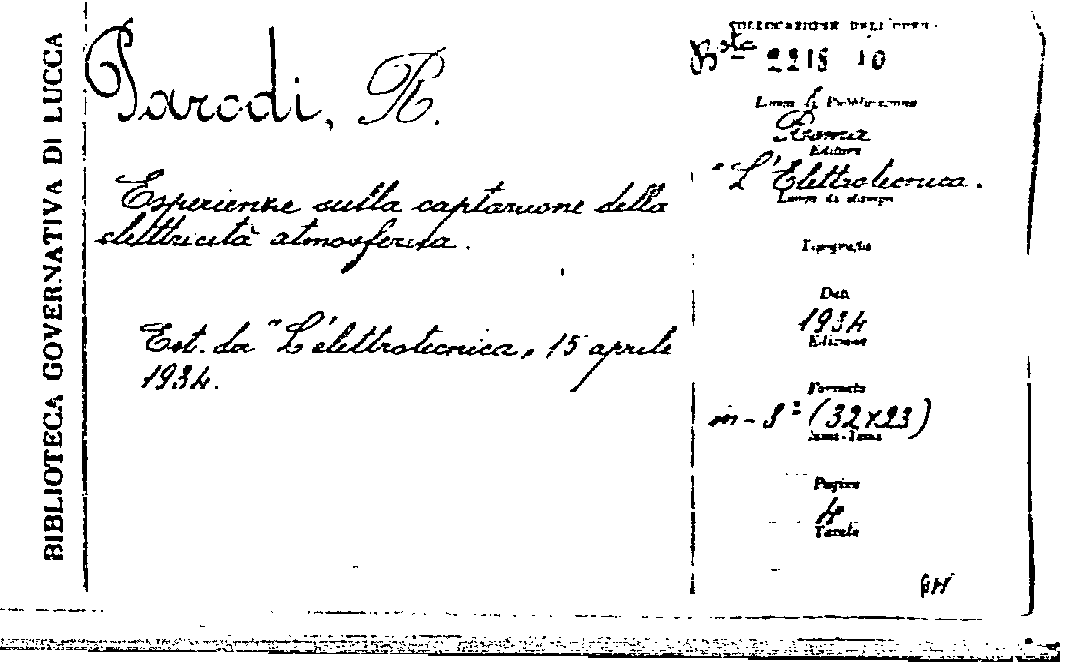 BIBLIOTECA GOVERNATIVA DI LUCCA
Parodi, R.
Esperienze sulla captazione della
elettricità atmosferica.
Est. da "L'elettrotecnica, 15 aprile
1934.
COLLOCAZIONE DELL'OPERA
Bsta 2215 10
Luogo di Pubblicazione
Roma
Editore
"L'Elettrotecnica.
Luogo di stampa
Tipografia
Data
1934
Edizione
Formato
in-8° (32x23)
Pagine
4
Tavole